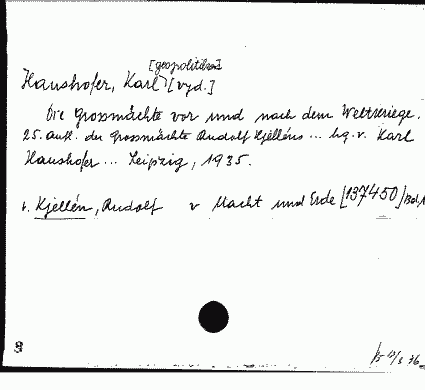 [geopolitika]
Haushofer, Karl [vyd.]
Die Grossmächte vor und nach dem Weltkriege.
25. Aufl. der Grossmächte Rudolf Kjelléns ... hg. v. Karl
Haushofer ... Leipzig, 1935.
1. Kjellén, Rudolf v Macht und Erde [137450]
8